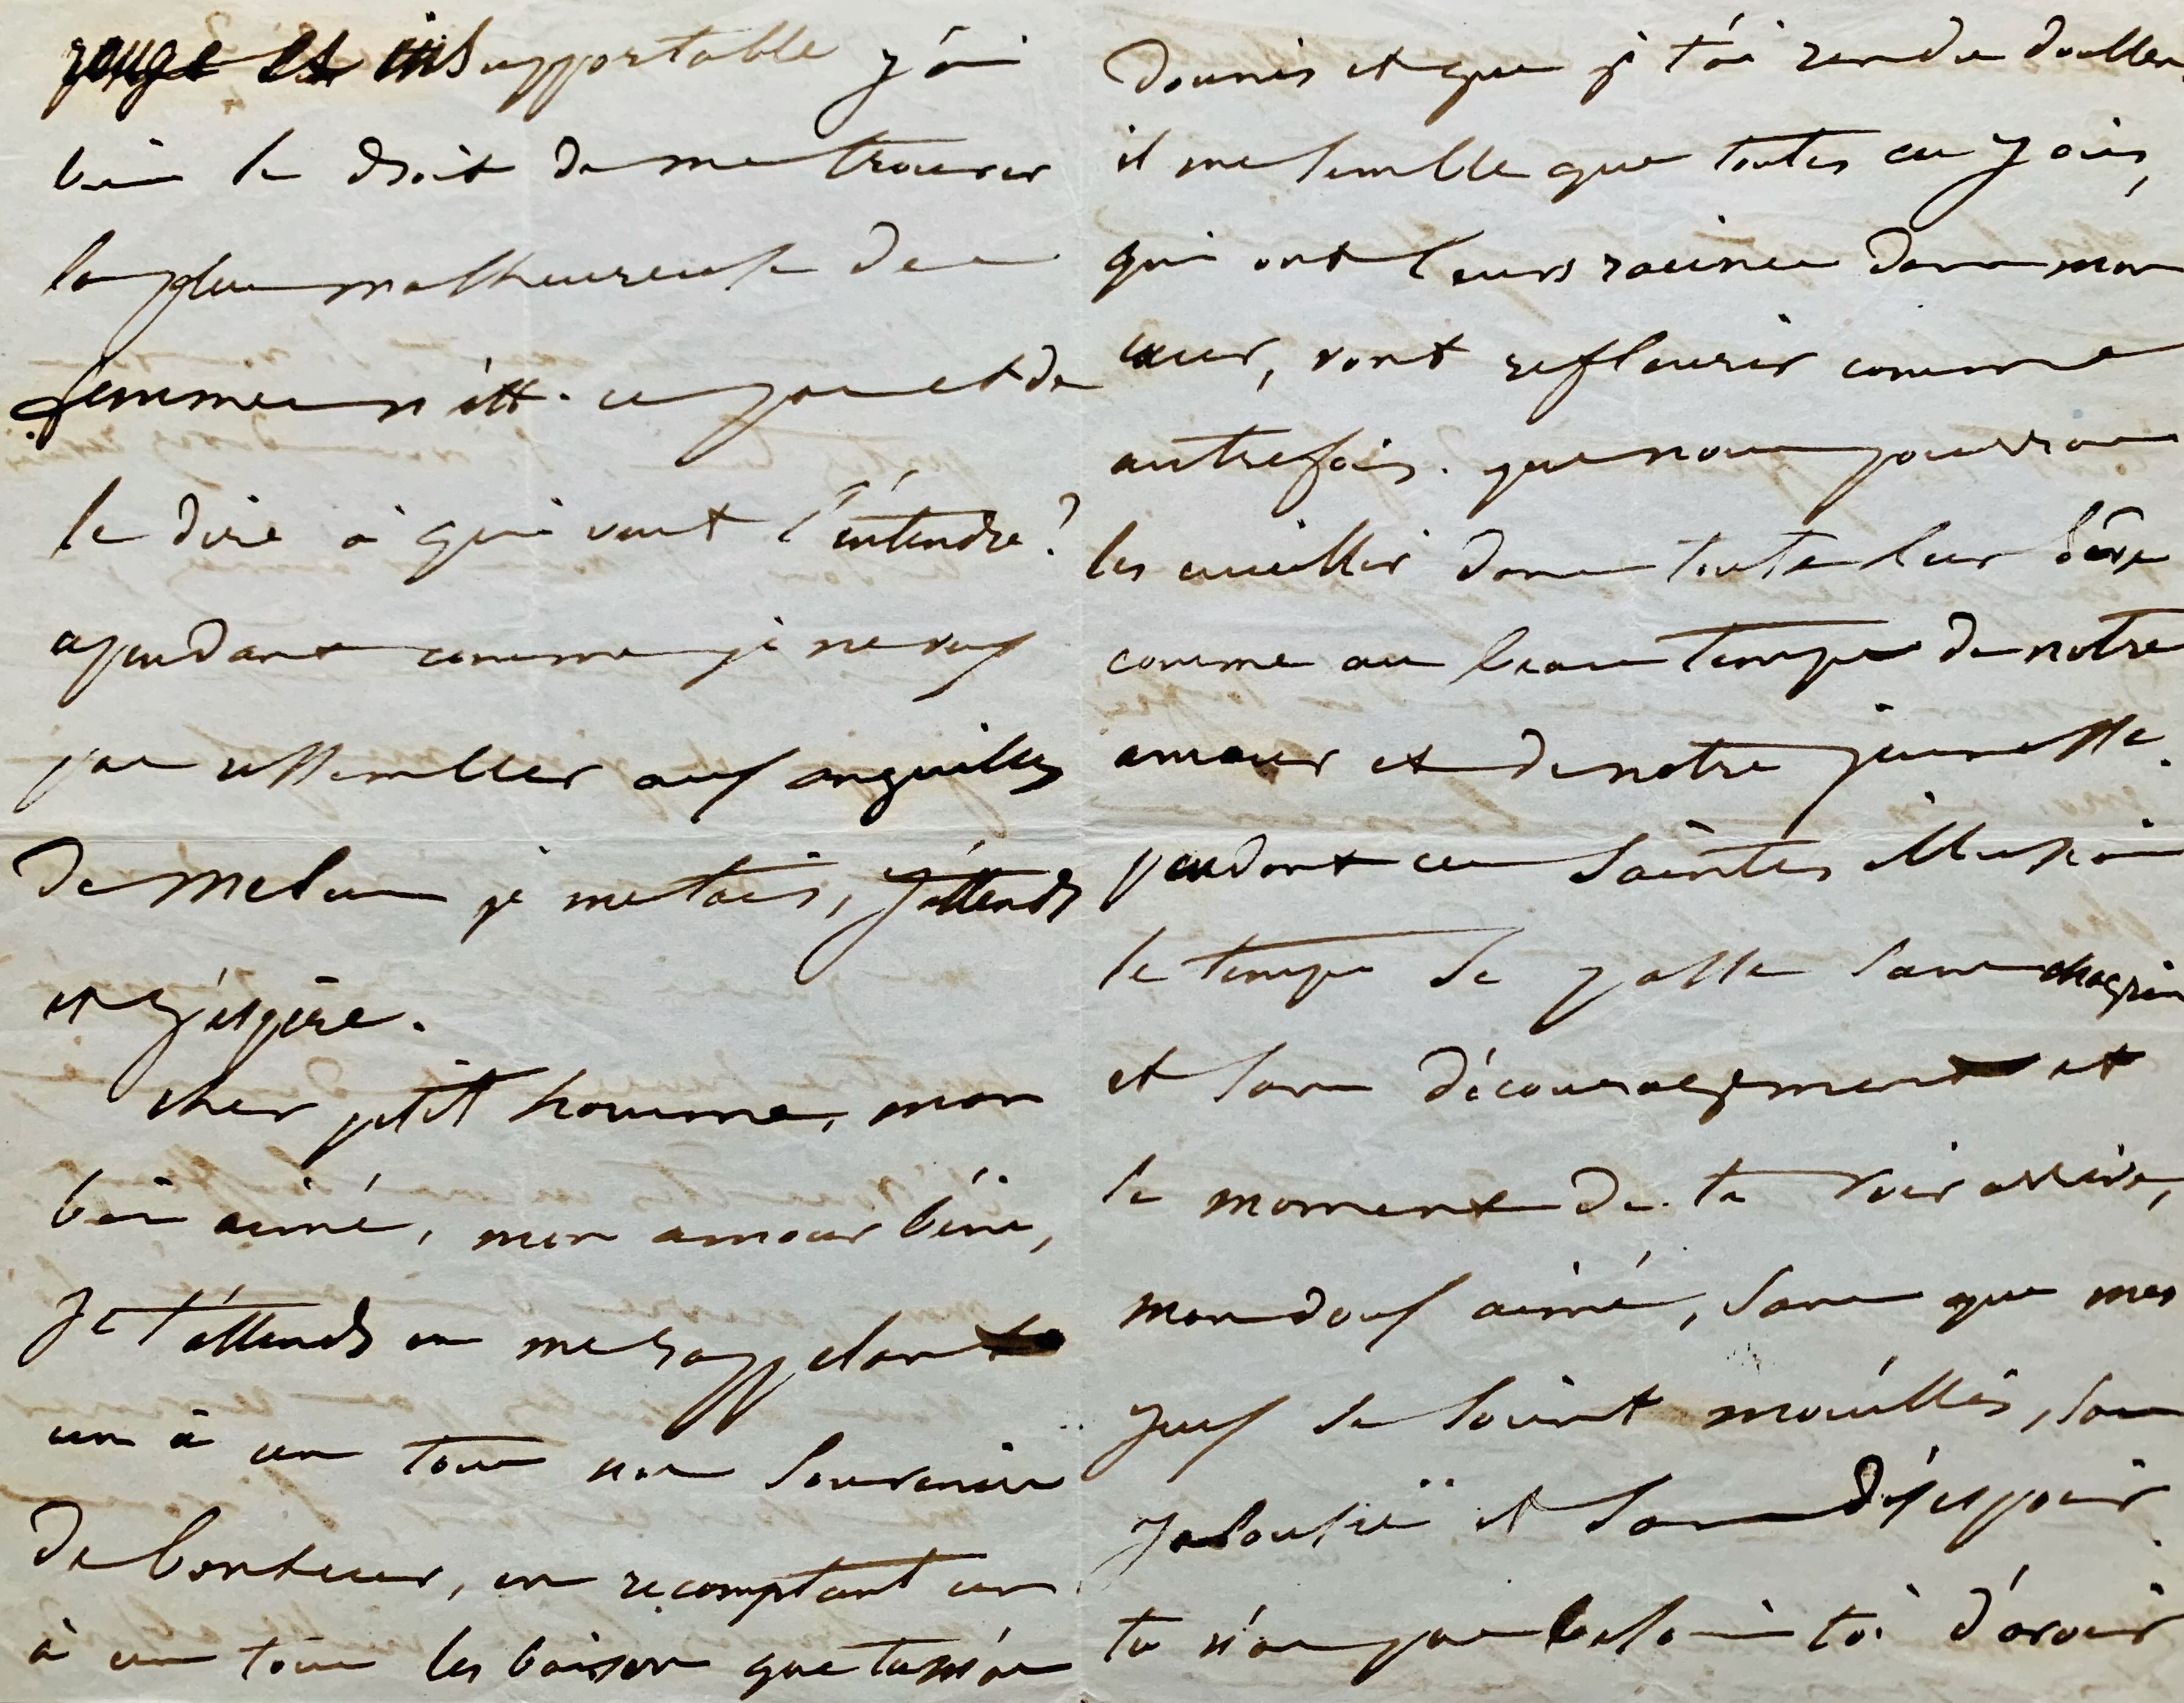 rouge et insupportable j'ai
bien le droit de me trouver
la plus malheureuse des
femmes n'est-ce pas et de
le dire à qui veut l'entendre ?
cependant comme je ne veux
pas ressembler aux anguilles
de melun je me tais, j'attends
et j'espère.
cher petit homme, mon
bien aimé, mon amour béni,
je t'attends en me rappelant
un à un tous nos souvenirs
de bonheur, en recomptant un
à un tous les baisers que tu m'as
donnés et que je t'ai rendu doubles
il me semble que toutes ces joies,
qui ont leurs racines dans mon
cœur, vont refleurir comme
autrefois. que nous pourrons
les cueillir dans toute leur
comme au beau temps de notre
amour et de notre jeunesse.
pendant ces saintes illusions
le temps se passe sans chagrin
et sans découragement et
le moment de te voir arrive,
mon doux aimé, sans que mes
yeux se soient mouillés, sans
jalousie et sans désespoir.
tu n'as pas besoin toi d'avoir